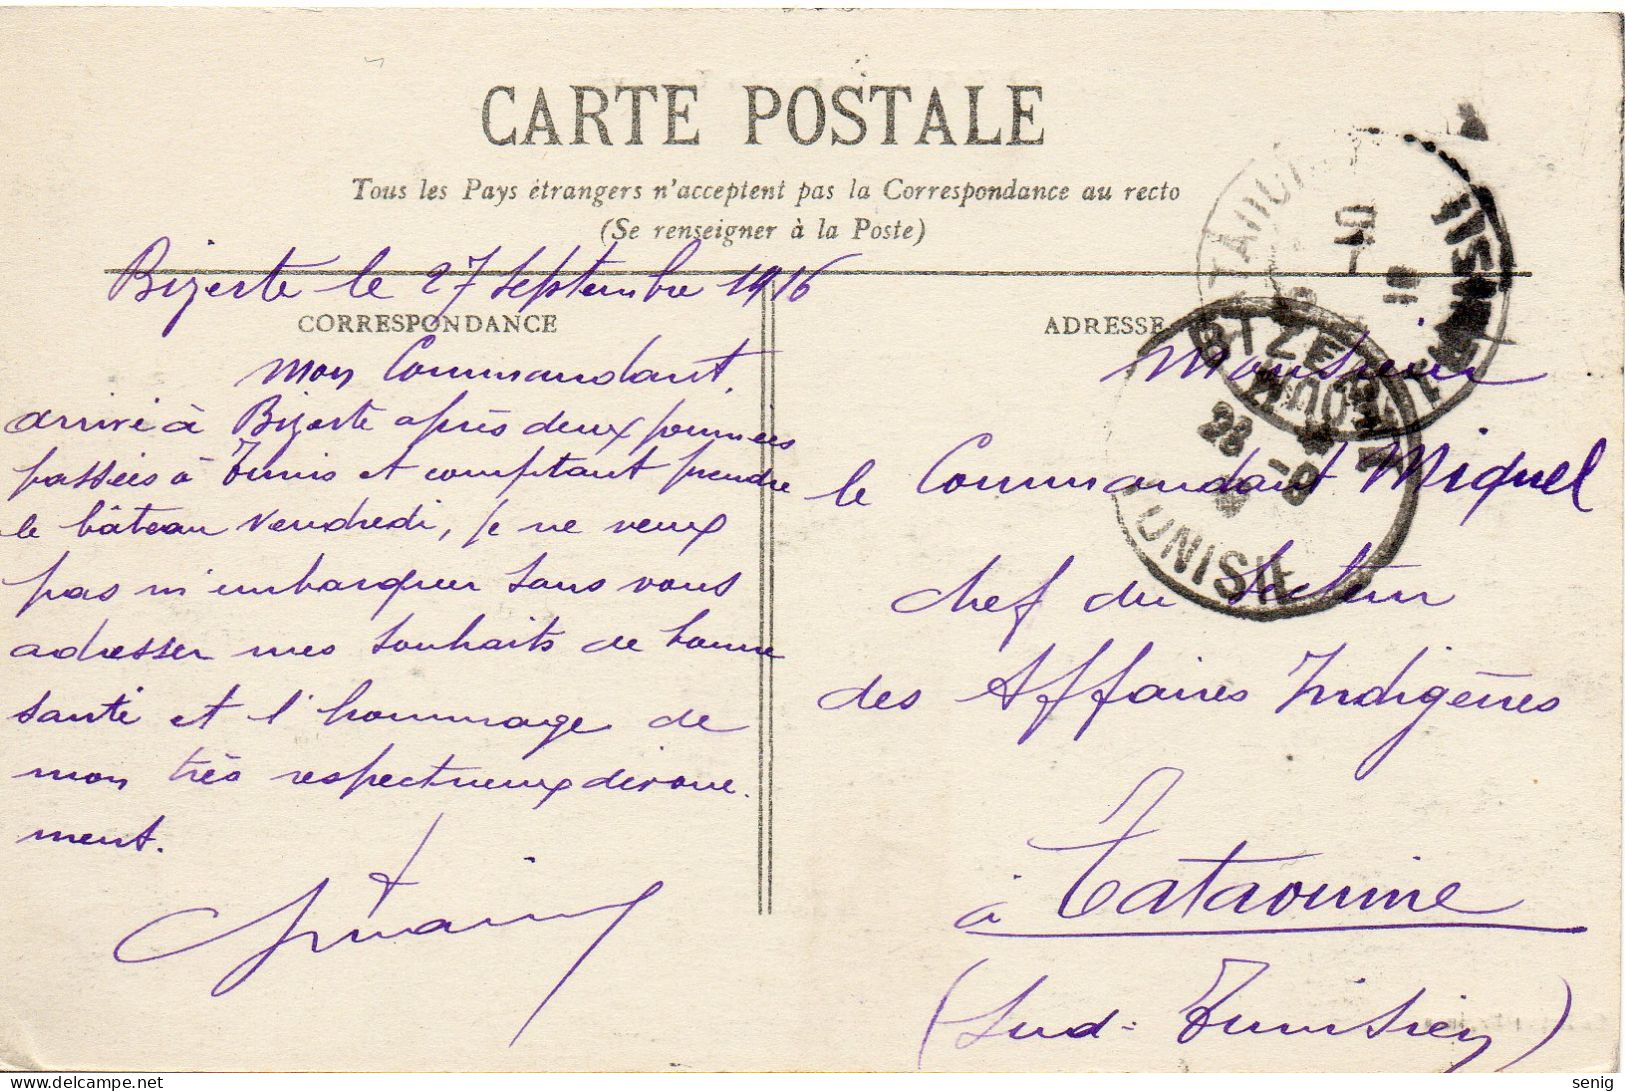 CARTE POSTALE
Tous les Pays étrangers n'acceptent pas la Correspondance au recto
(Se renseigner à la Poste)
Bizerte le 27 Septembre 1916
CORRESPONDANCE
Mon Commandant,
arrivé à Bizerte après deux journées
passées à Tunis et comptant prendre
le bâteau vendredi, je ne veux
pas m'embarquer sans vous
adresser mes souhaits de bonne
santé et l'hommage de
mon très respectueux devoue-
ment.
ADRESSE
Monsieur
le Commandant Miquel
chef du Secteur
des Affaires Indigènes
à Tataouine
(Sud-Tunisien)
BIZERTE
28 -9
TUNISIE
delcampe.net
senig